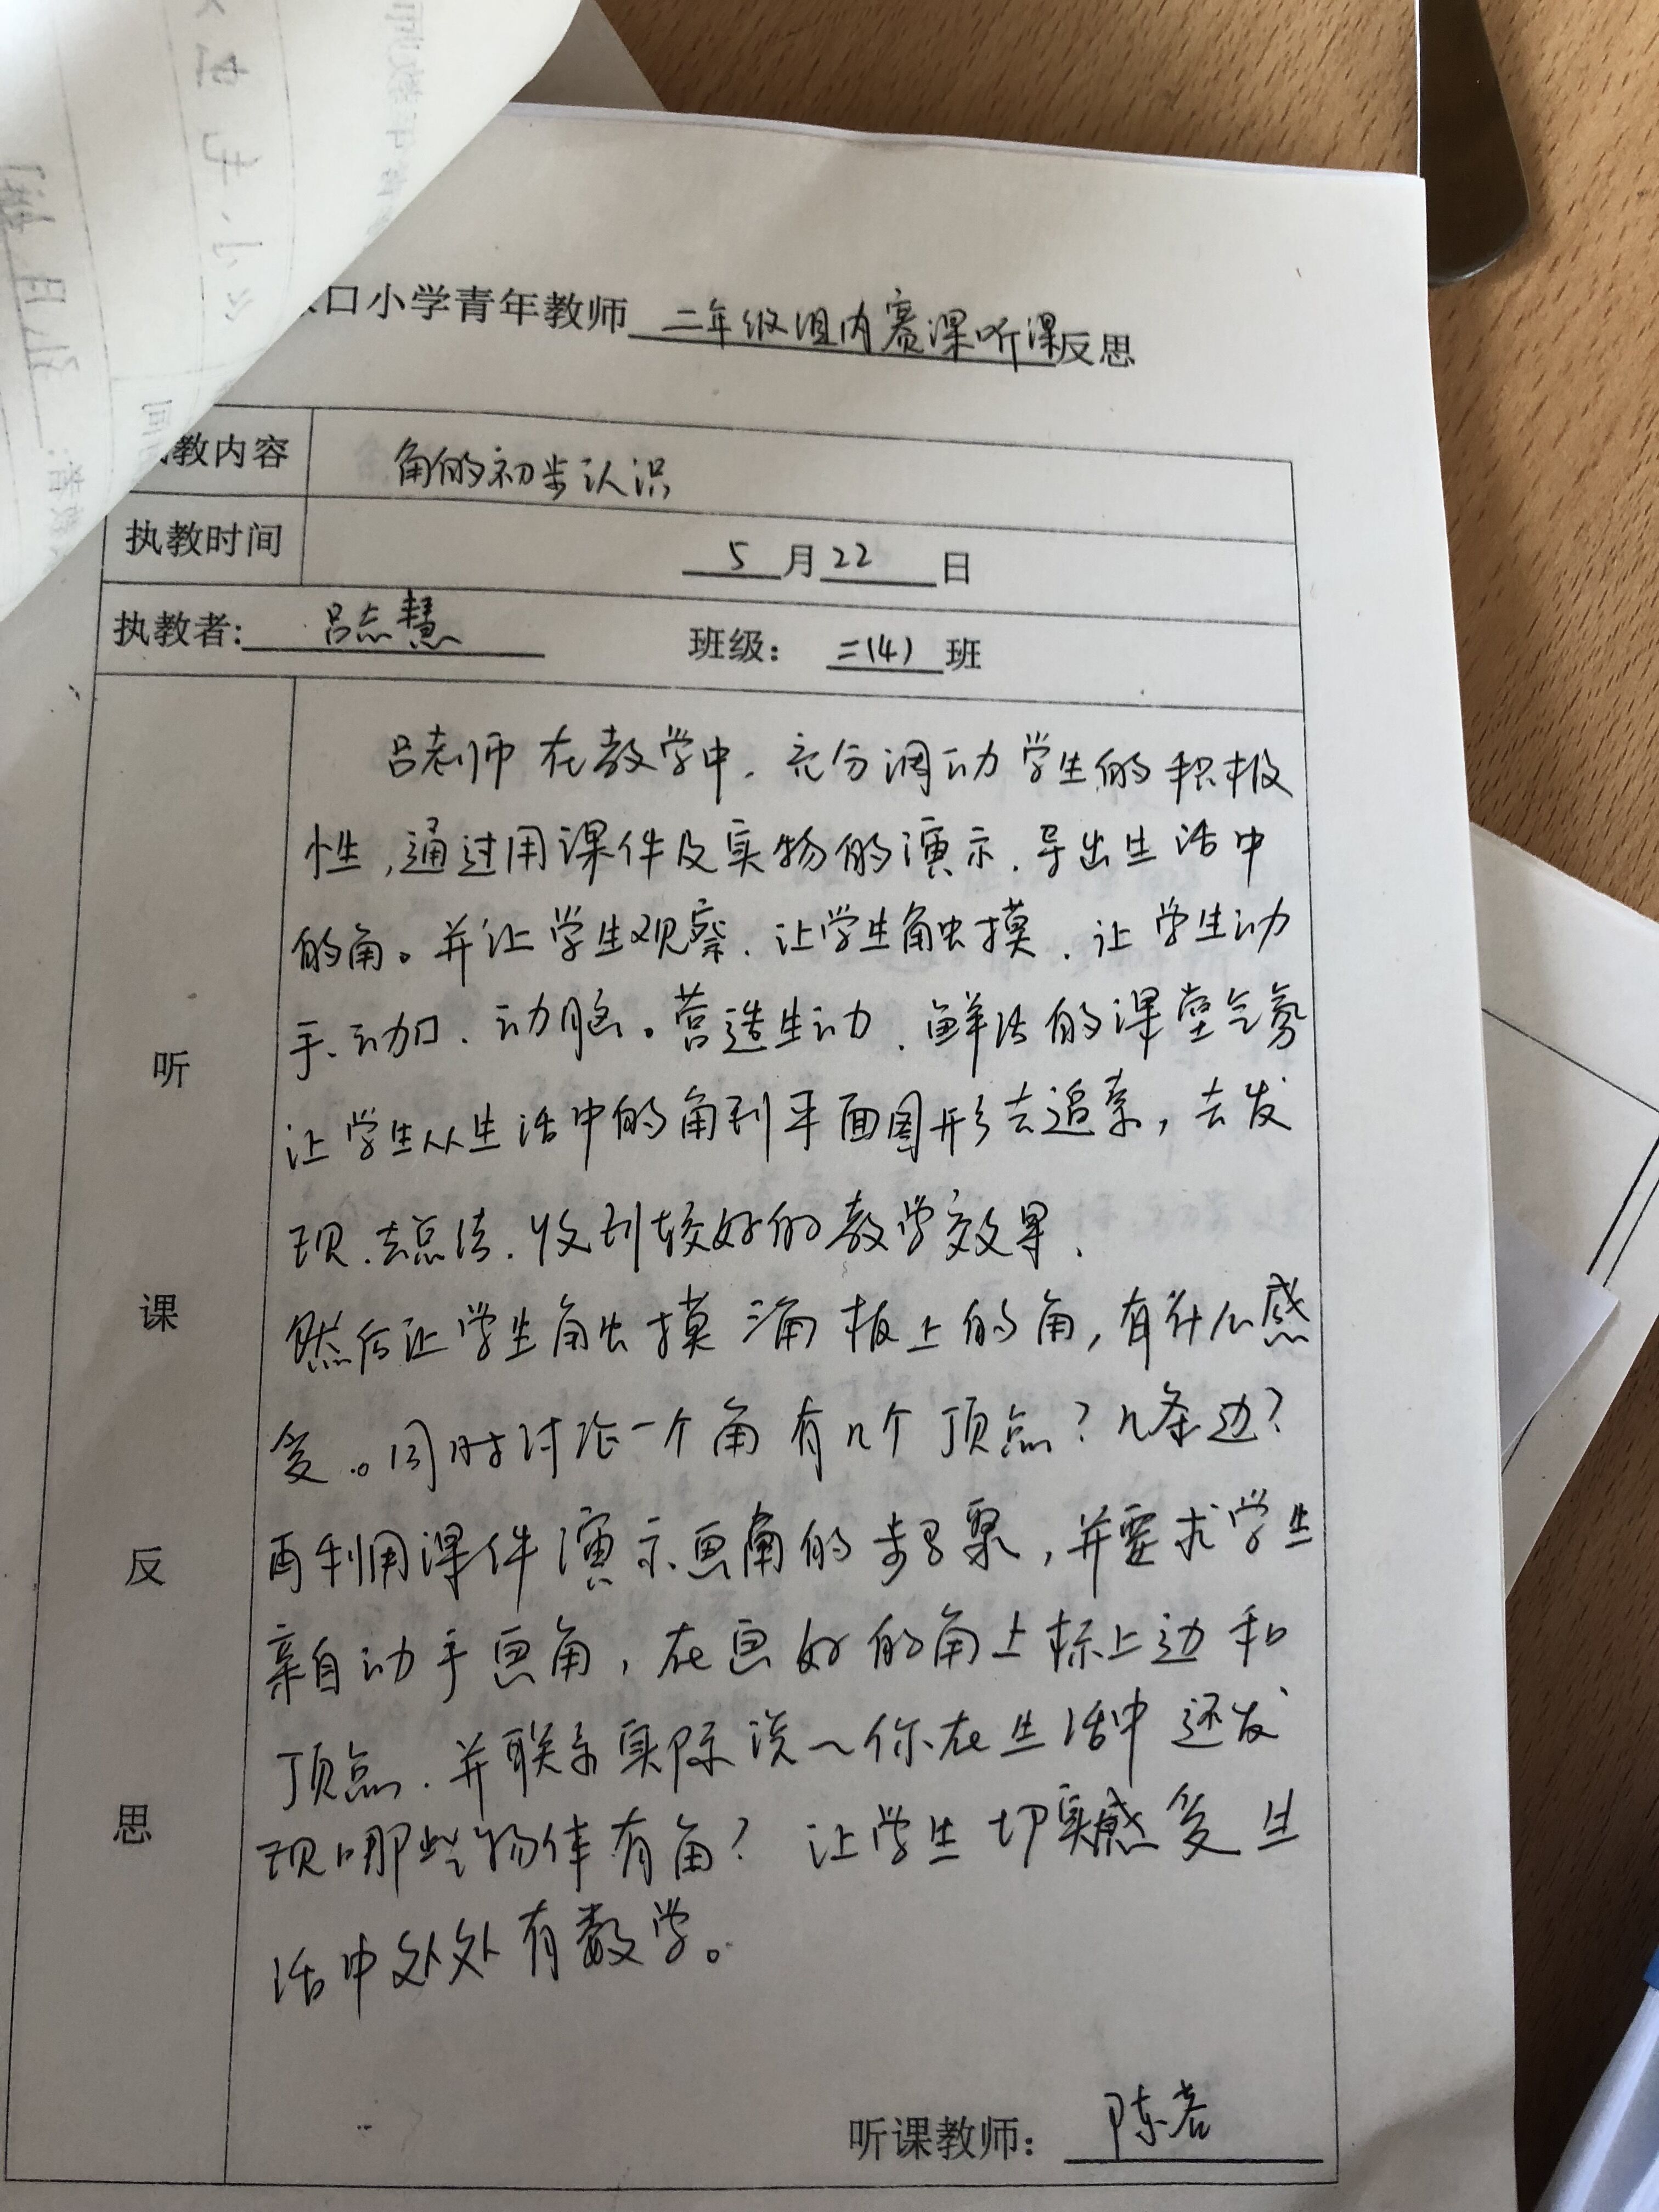 口小学青年教师二年级组内赛课听课反思
教内容 角的初步认识
执教时间 5月22日
执教者:吕志慧 班级:二(4)班
听课反思
吕老师在教学中，充分调动学生的积极
性,通过用课件及实物的演示、导出生活中
的角。并让学生观察、让学生触摸、让学生动
手、动口、动脑。营造生动、鲜活的课堂气氛
让学生从生活中的角到平面图形去追索,去发
现、去总结、收到较好的教学效果、
然后让学生触摸三角板上的角,有什么感
受。同时讨论一个角有几个顶点?几条边?
再利用课件演示画角的步骤,并要求学生
亲自动手画角,在画好的角上标上边和
顶点、并联系实际说一你在生活中还发
现哪些物体有角? 让学生切实感受生
活中处处有数学。
听课教师:陈若